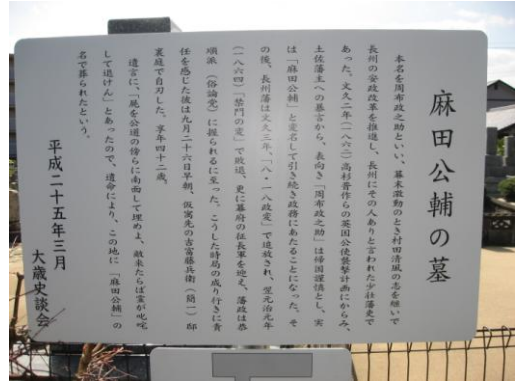 麻田公輔の墓
本名を周布政之助といい、幕末激動のとき村田清風の志を継いで
長州の安政改革を推進し、長州にその人ありと言われた少壮藩吏で
あった。文久二年(一八六二)高杉晋作らの英国公使襲撃計画にからみ、
土佐藩主への暴言から、表向き「周布政之助」は帰国謹慎とし、実
は「麻田公輔」と変名して引き続き政務にあたることになった。そ
の後、長州藩は文久三年、「八・一八政変」で追放され、翌元治元年
(一八六四)「禁門の変」で敗退、更に幕府の征長軍を迎え、藩政は恭
順派(俗論党)に握られるに至った。こうした時局の成り行きに責
任を感じた彼は九月二十六日早朝、仮寓先の吉富藤兵衛(簡一)邸
裏庭で自刃した。享年四十二歳。
遺言に、「屍を公道の傍らに南面して埋めよ、敵来たらば霊が叱咤
して退けん」とあったので、遺命により、この地に「麻田公輔」の
名で葬られたという。
平成二十五年三月
大歳史談会